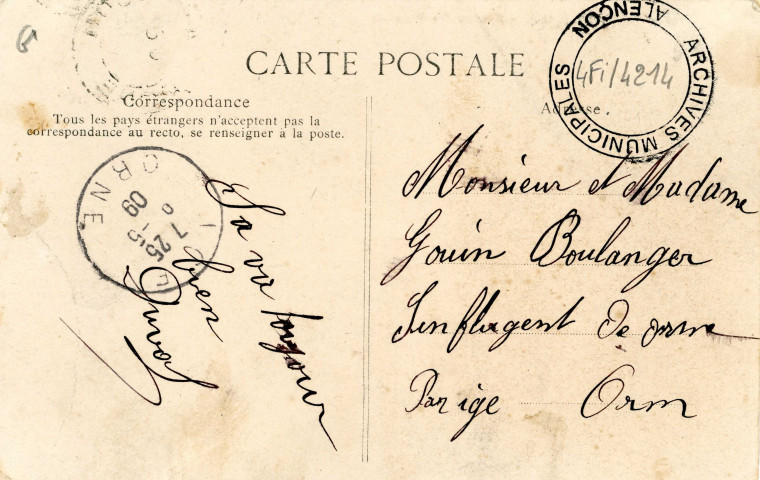 CARTE POSTALE
ARCHIVES MUNICIPALES
ALENÇON
4Fi/4214
Correspondance
Tous les pays étrangers n'acceptent pas la
correspondance au recto, se renseigner à la poste.
Adresse.
Monsieur et Madame
Gouin Boulanger
de orne
Par ige Orm
Sa va toujour
bien
Duval
ORNE
7 25
09